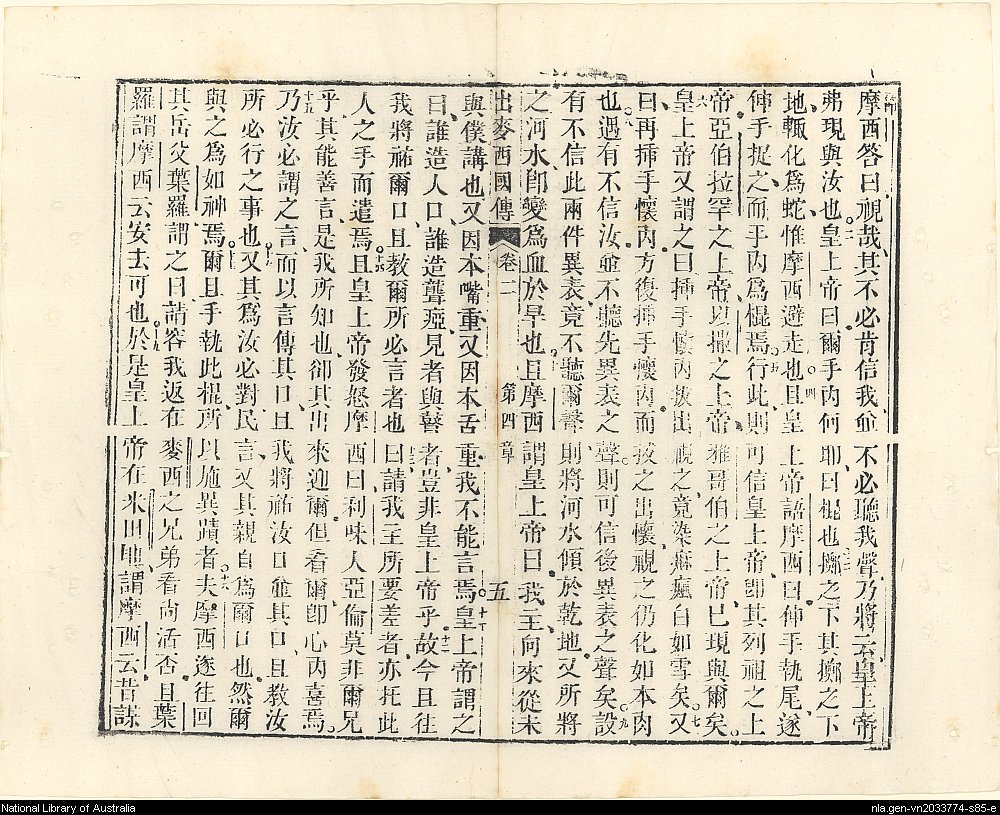 摩西答曰視哉其不必肯信我並不必聽我聲乃將云皇上帝
弗現與汝也二皇上帝曰爾手內何耶曰棍也三擲之下其擲之下
地輒化爲蛇惟摩西避走也四且皇上帝語摩西曰伸手執尾遂
伸手捉之而手內爲棍焉五行此則可信皇上帝卽其列祖之上
帝亞伯拉罕之上帝以撒之上帝雅哥伯之上帝已現與爾矣
六皇上帝又謂之曰揷手懷內拔出視之竟染痳瘋白如雪矣七又
曰再揷手懷內方復揷手懷內而拔之出懷視之仍化如本肉
也八遇有不信汝並不聽先異表之聲則可信後異表之聲矣九設
有不信此兩件異表竟不聽爾聲則將河水傾於乾地又所將
之河水卽變爲血於旱也十且摩西謂皇上帝曰我主向來從未
出麥西國傳 卷二 第四章 五
與僕講也又因本嘴重又因本舌重我不能言焉十一皇上帝謂之
曰誰造人口誰造聾瘂見者與瞽者豈非皇上帝乎十二故今且往
我將祐爾口且教爾所必言者也十三曰請我主所要差者亦托此
人之手而遣焉十四且皇上帝發怒摩西曰利味人亞倫莫非爾兄
乎其能善言是我所知也卻其出來迎爾但看爾卽心內喜焉
十五乃汝必謂之言而以言傳其口且我將祐汝口並其口且教汝
所必行之事也十六又其爲汝必對民言又其親自爲爾口也然爾
與之爲如神焉十七爾且手執此棍所以施異蹟者十八夫摩西遂往回
其岳父葉羅謂之曰請容我返在麥西之兄弟看尚活否且葉
羅謂摩西云安去可也十九於是皇上帝在米田地謂摩西云昔謀
National Library of Australia
nla.gen-vn2033774-s85-e